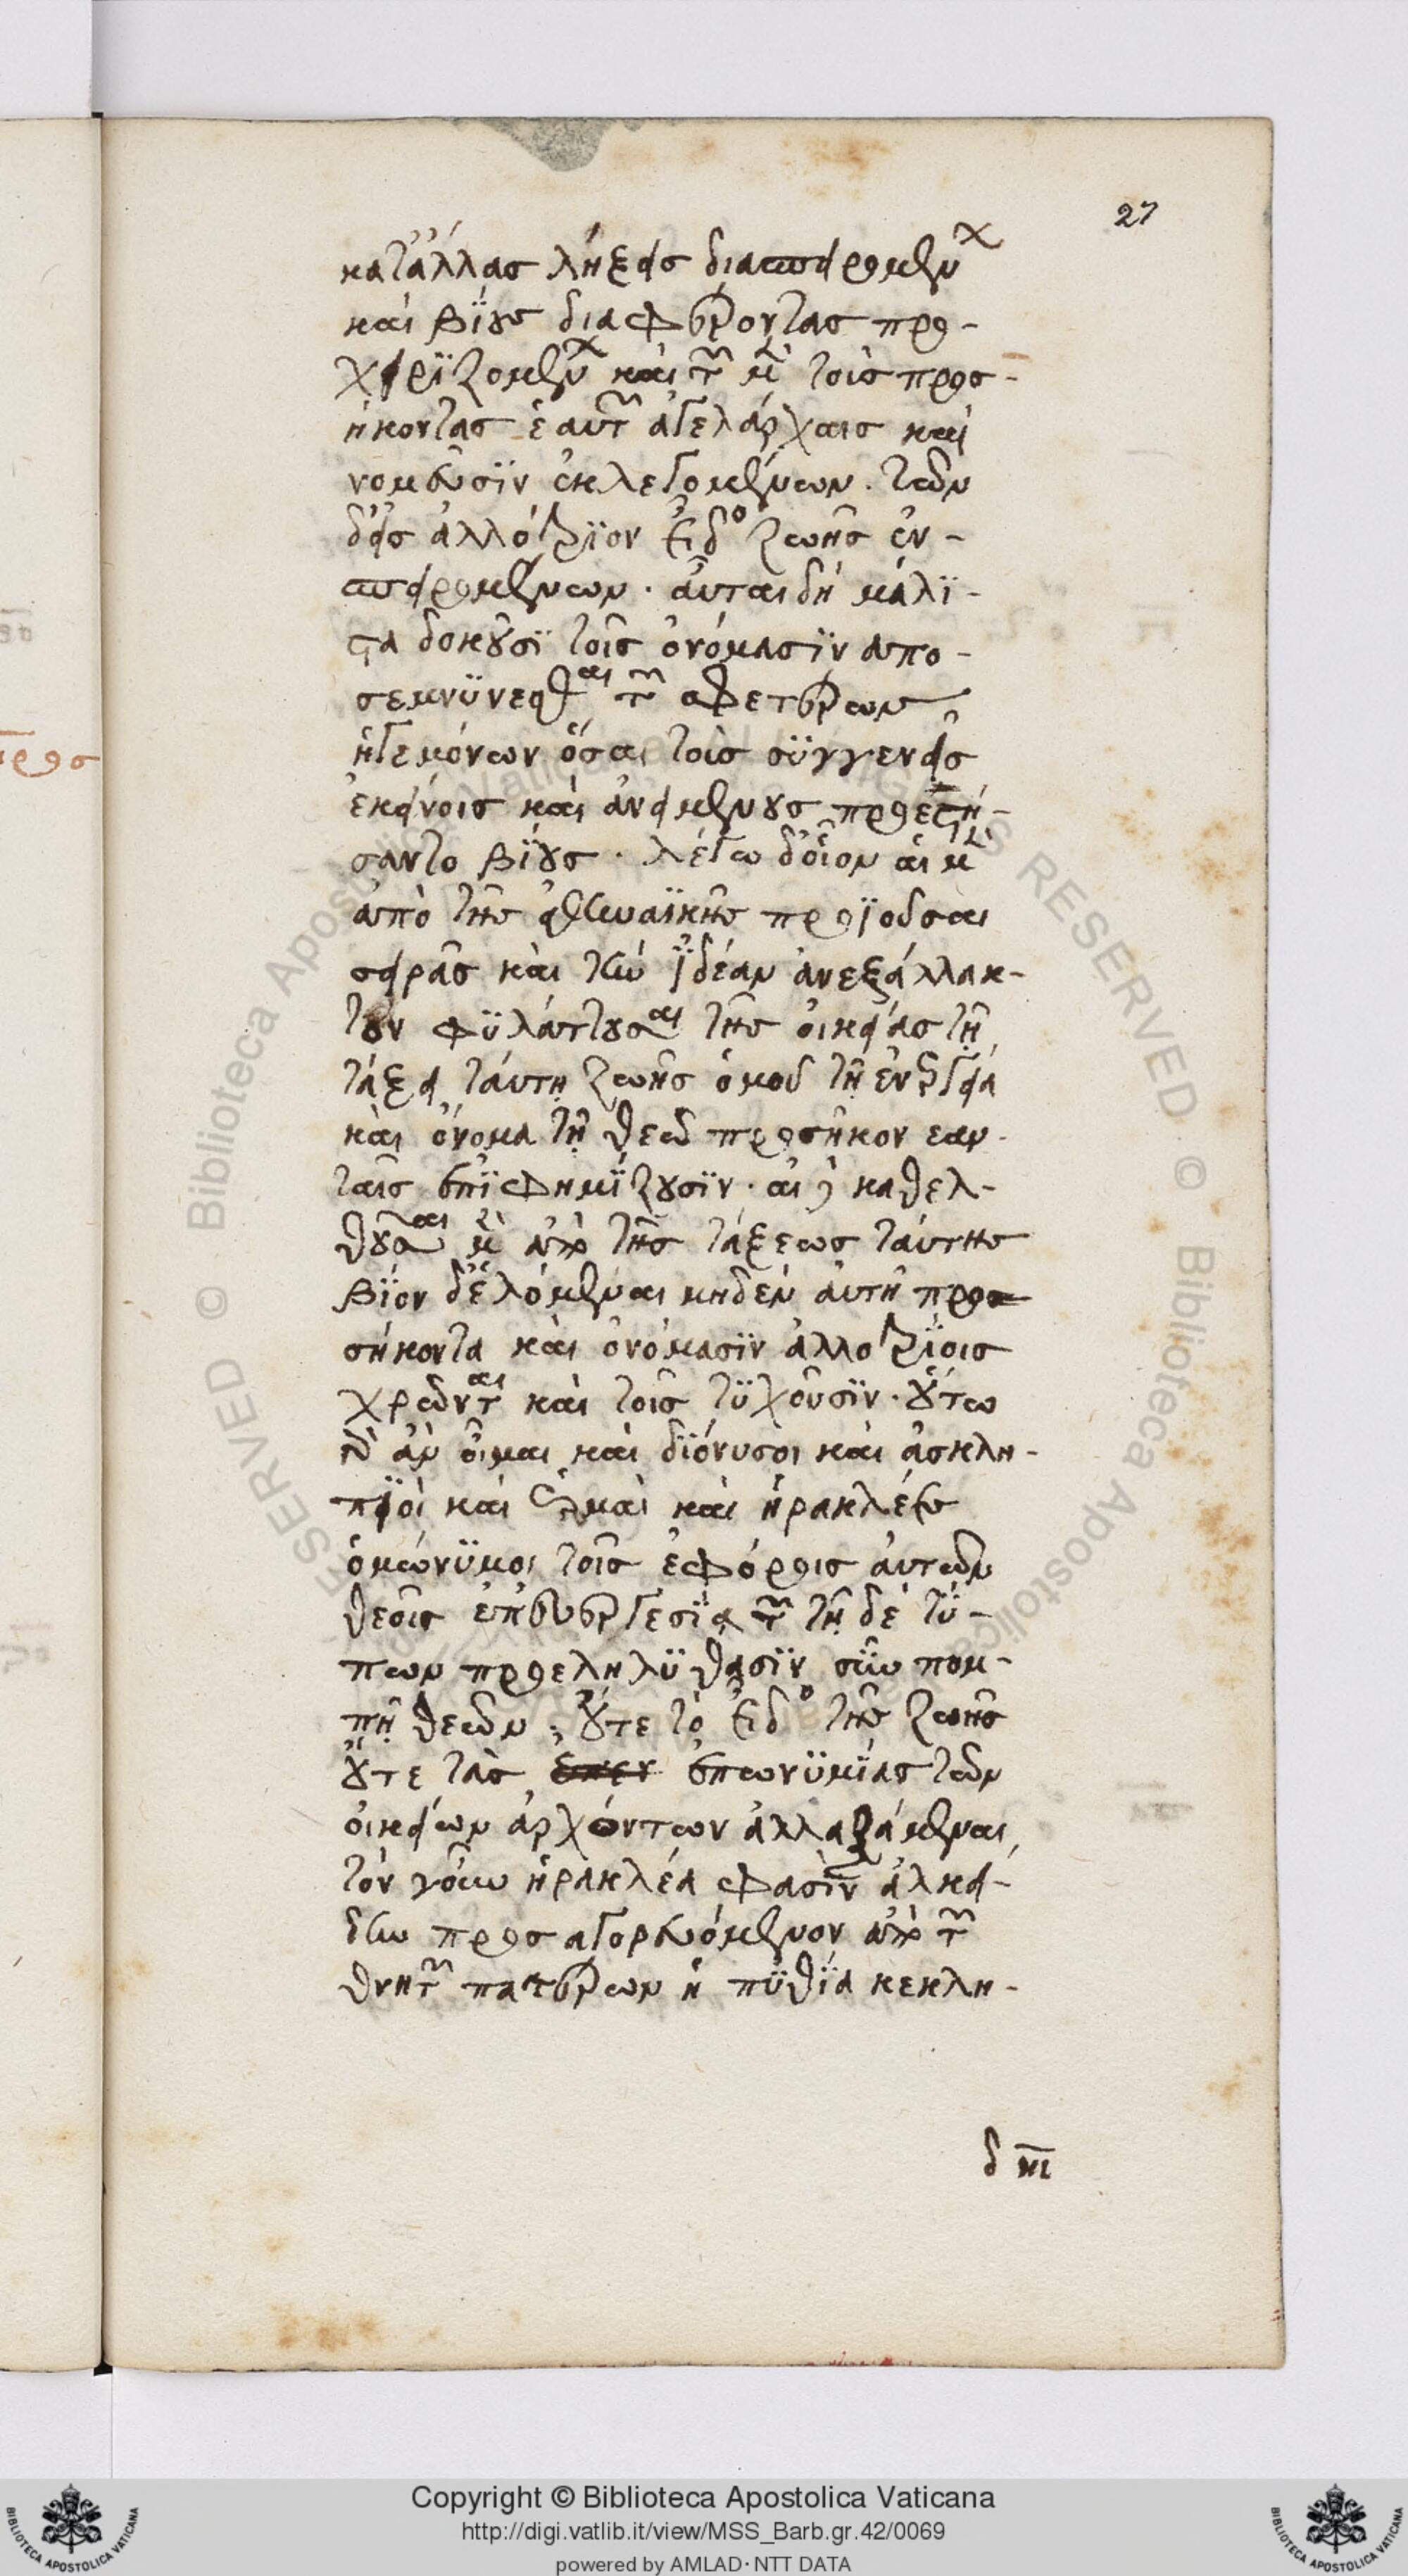 27
κατ' ἄλλας λήξεις διασπειρομένων
καὶ βίους διαφέροντας προ-
χειριζομένων καὶ τῶν μὲν τοῖς προσ-
ήκοντας ἑαυτῶν ἀγελάρχαις καὶ
νομεῦσιν ἐκλεγομένων. τῶν
δ' εἰς ἀλλότριον εἶδος ζωῆς ἐν-
σπειρομένων. αὗται δὴ μάλι-
στα δοκοῦσι τοῖς ὀνόμασιν ἀπο-
σεμνύνεσθαι τῶν σφετέρων
ἡγεμόνων ὅσαι τοὺς συγγενεῖς
ἐκείνοις καὶ ἀνειμένους προεστή-
σαντο βίους. λέγω δ' οἷον αἱ μὲν
ἀπὸ τῆς ἀθηναϊκῆς προϊοῦσαι
σειρᾶς καὶ τὴν ἰδέαν ἀνεξάλλακ-
τον φυλάττουσαι τῆς οἰκείας τῇ
τάξει ταύτῃ ζωῆς ὁμοῦ τῇ ἐνεργείᾳ
καὶ ὄνομα τῇ θεῷ προσῆκον ἑαυ-
ταῖς ἐπιφημίζουσιν. αἱ δὲ κατελ-
θοῦσαι μὲν ἀπὸ τῆς τάξεως ταύτης
βίον δ' ἑλόμεναι μηδὲν αὐτῇ προσ
σήκοντα καὶ ὀνόμασιν ἀλλοτρίοις
χρῶνται καὶ τοῖς τυχοῦσιν. οὕτω
δ' ἂν οἶμαι καὶ διόνυσοι καὶ ἀσκλη-
πιοὶ καὶ ἑρμαῖ καὶ ἡρακλέες
ὁμώνυμοι τοῖς ἐφόροις αὐτῶν
θεοῖς ἐπ' εὐεργεσίᾳ τῶν τῇδε τό-
πων προεληλύθασιν σὺν πομ-
πῇ θεῶν, οὔτε τὸ εἶδος τῆς ζωῆς
οὔτε τὰς ἐπωνυμίας τῶν
οἰκείων ἀρχόντων ἀλλαξάμεναι,
τὸν γοῦν ἡρακλέα φασὶν ἀλκεί-
δην προσαγορευόμενον ἀπὸ τῶν
θνητῶν πατέρων ἡ πυθία κεκλη-
δ III
Copyright © Biblioteca Apostolica Vaticana
http://digi.vatlib.it/view/MSS_Barb.gr.42/0069
powered by AMLAD·NTT DATA